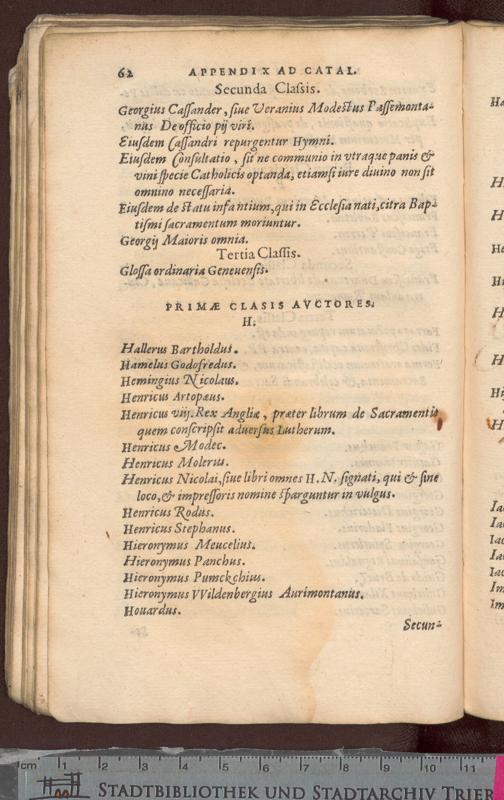 62 APPENDIX AD CATAL.
Secunda Classis.
Georgius Cassander, siue Veranius Modestus Passemonta-
nus De officio pij viri.
Eiusdem Cassandri repurgentur Hymni.
Eiusdem Consultatio, sit ne communio in vtraque panis &
vini specie Catholicis optanda, etiamsi iure diuino non sit
omnino necessaria.
Eiusdem de statu infantium, qui in Ecclesia nati, citra Bap-
tismi sacramentum moriuntur.
Georgij Maioris omnia.
Tertia Classis.
Glossa ordinaria Geneuensis.
PRIMÆ CLASIS AVCTORES.
H.
Hallerus Bartholdus.
Hamelus Godofredus.
Hemingius Nicolaus.
Henricus Artopæus.
Henricus viij. Rex Angliæ, præter librum de Sacramentis
quem conscripsit aduersus Lutherum.
Henricus Modec.
Henricus Molerus.
Henricus Nicolai, siue libri omnes H. N. signati, qui & sine
loco, & impressoris nomine sparguntur in vulgus.
Henricus Rodus.
Henricus Stephanus.
Hieronymus Meucelius.
Hieronymus Panchus.
Hieronymus Pumckchius.
Hieronymus VVildenbergius Aurimontanus.
Houardus.
Secun-
cm 1 2 3 4 5 6 7 8 9 10 11
STADTBIBLIOTHEK UND STADTARCHIV TRIER